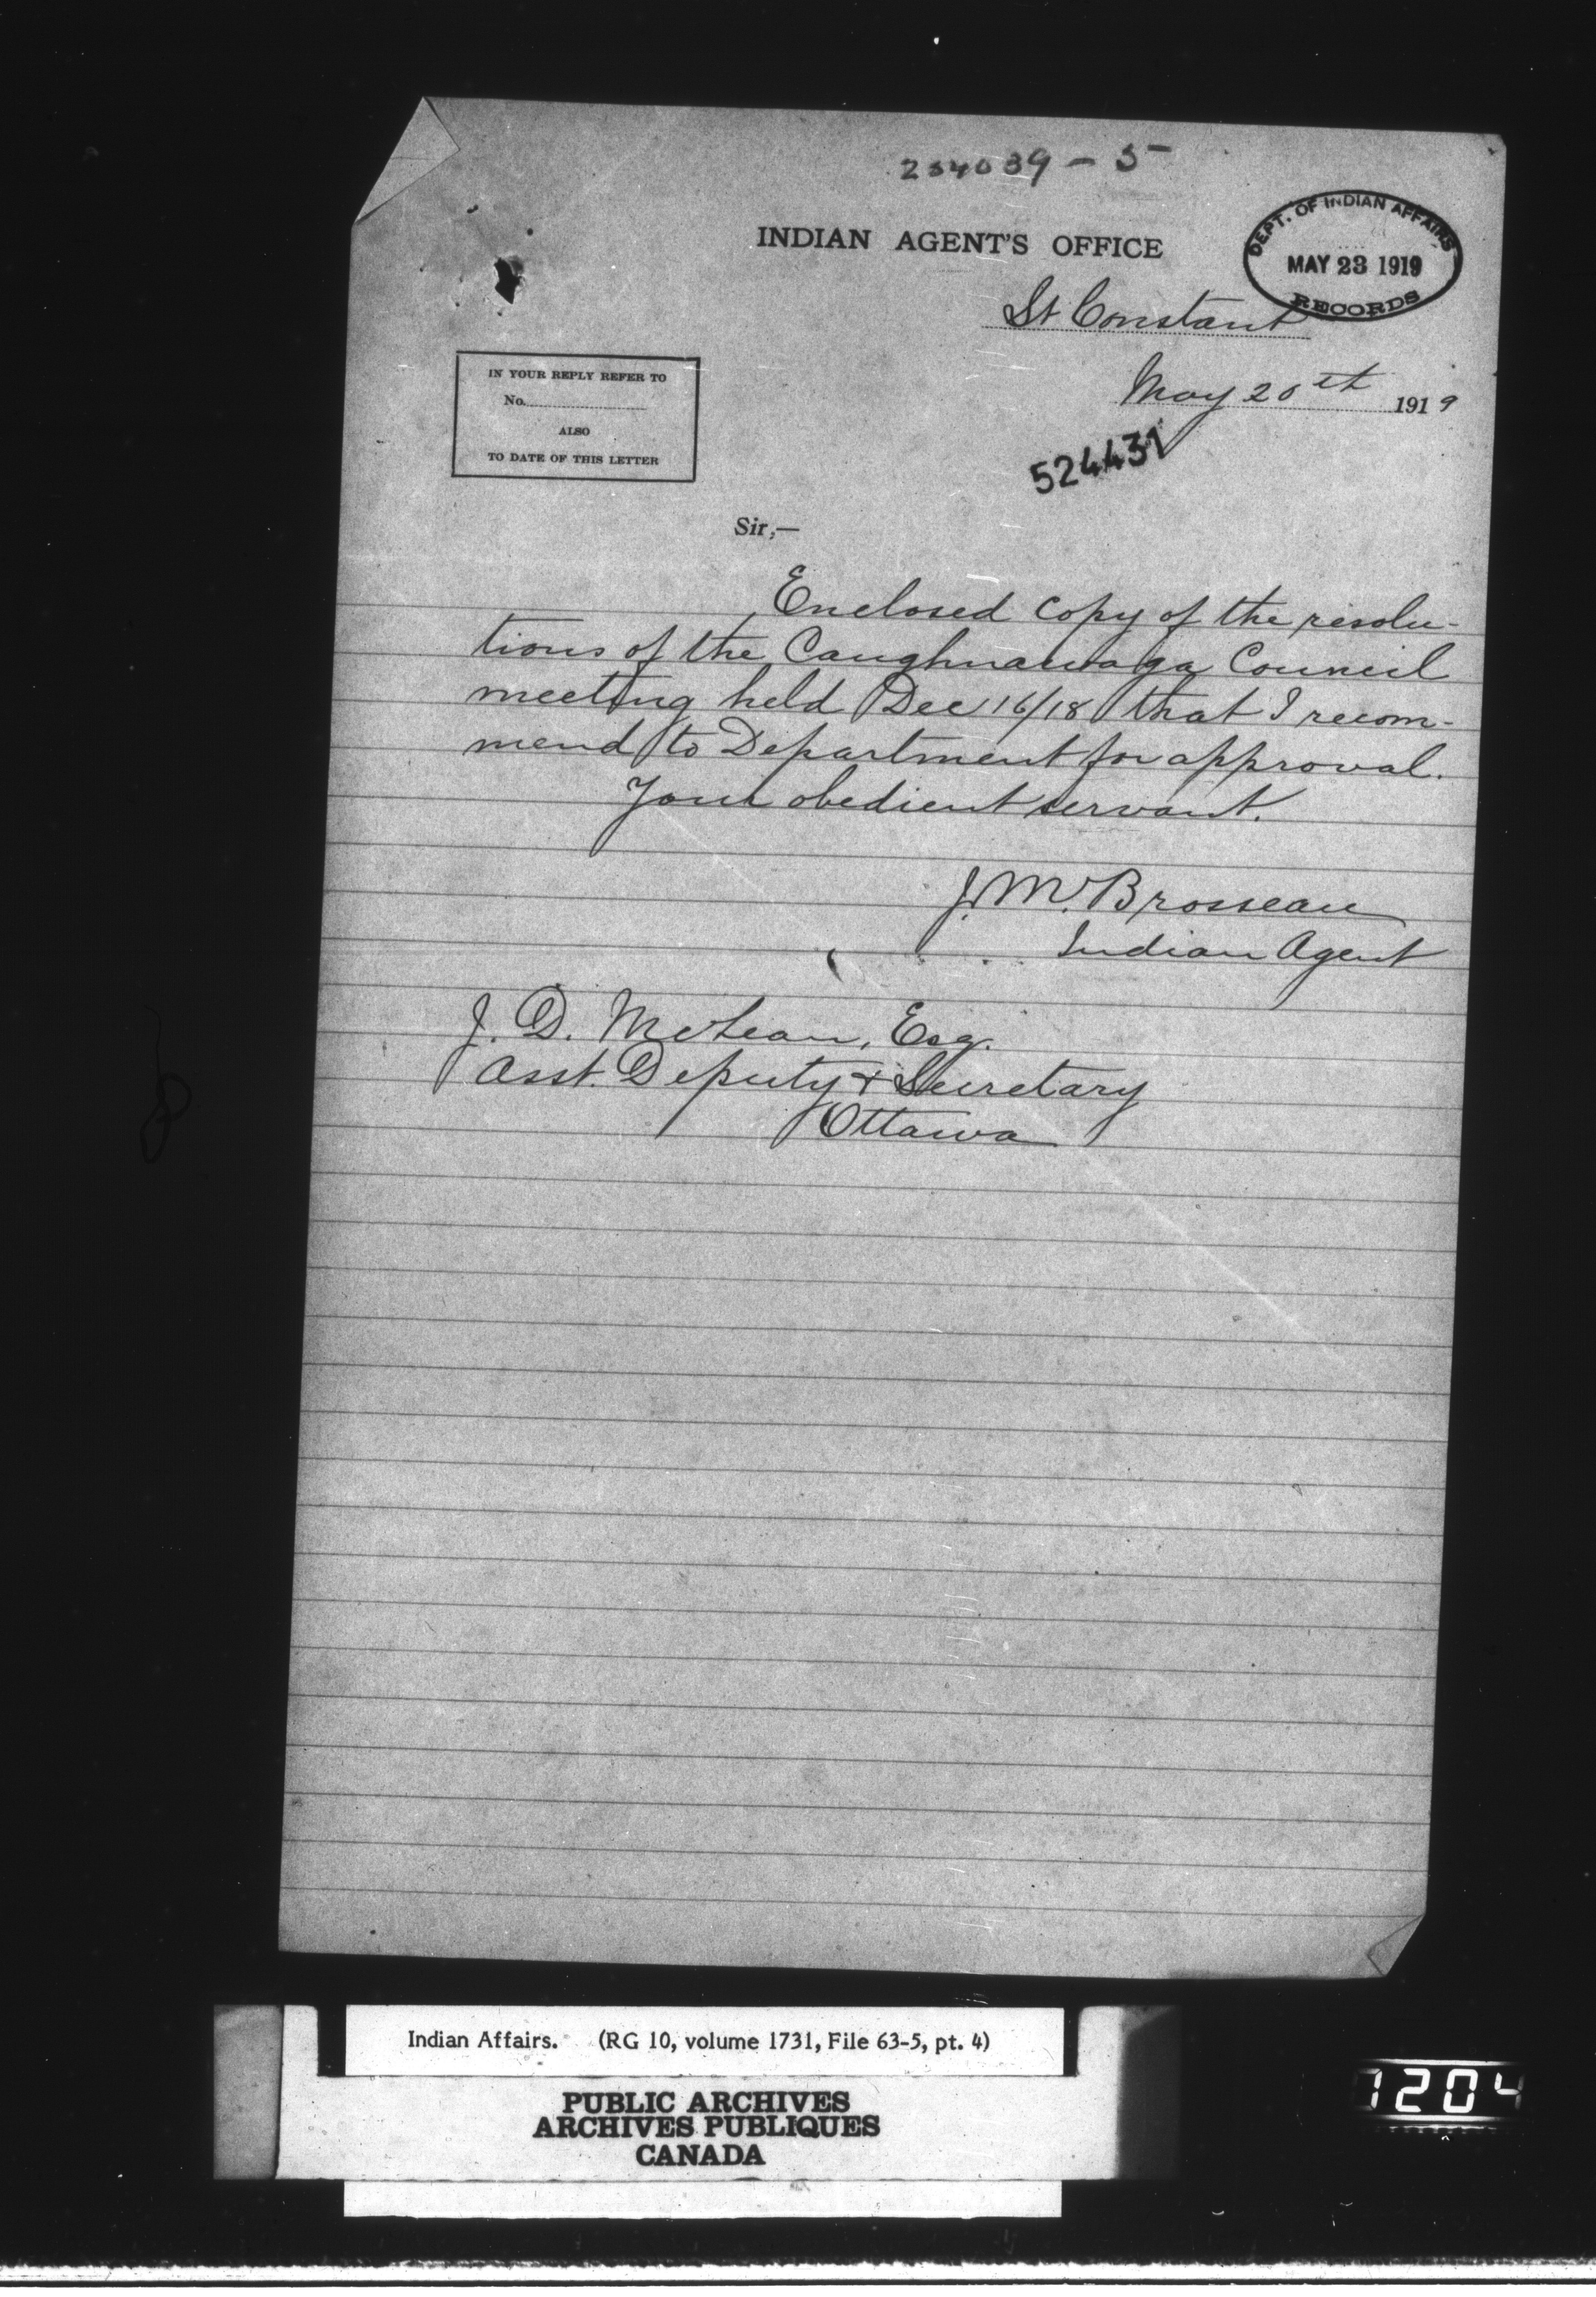 234039 - 5
INDIAN AGENT'S OFFICE
DEPT. OF INDIAN AFFAIRS
MAY 23 1919
RECORDS
St Constant
May 20th 1919
IN YOUR REPLY REFER TO
No.
ALSO
TO DATE OF THIS LETTER
524431
Sir,—
Enclosed copy of the resolu-
tions of the Caughnawaga Council
meeting held Dec 16/18 that I recom-
mend to Department for approval.
Your obedient servant.
J. M. Brosseau
Indian Agent
J. D. McLean, Esq.
Asst. Deputy & Secretary
Ottawa
Indian Affairs. (RG 10, volume 1731, File 63-5, pt. 4)
PUBLIC ARCHIVES
ARCHIVES PUBLIQUES
CANADA
1204